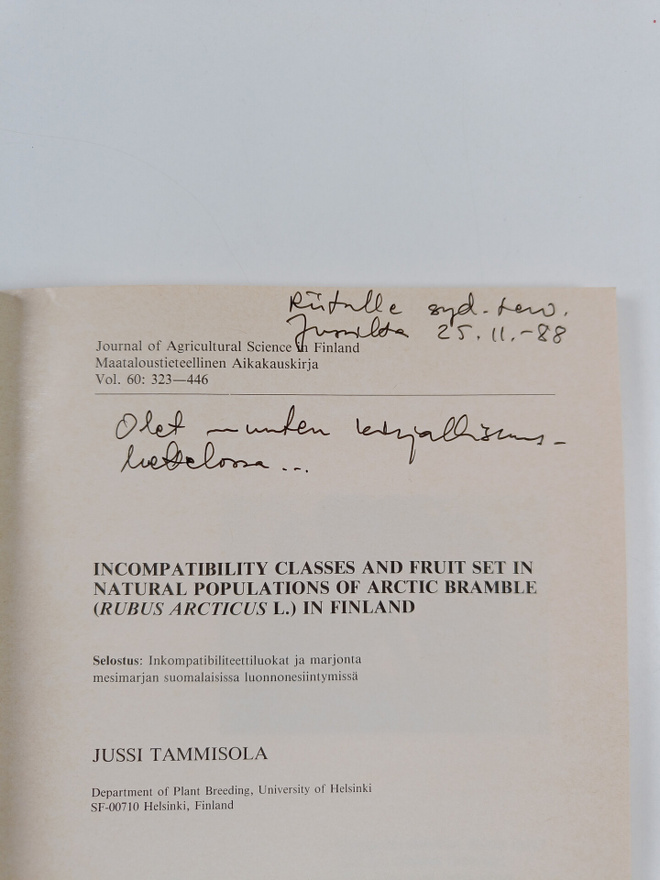 Riitalle syd. terv.
Jussilta 25.11.-88
Journal of Agricultural Science in Finland
Maataloustieteellinen Aikakauskirja
Vol. 60: 323—446
Olet muuten kirjallisuus-
luettelossa ...
INCOMPATIBILITY CLASSES AND FRUIT SET IN
NATURAL POPULATIONS OF ARCTIC BRAMBLE
(RUBUS ARCTICUS L.) IN FINLAND
Selostus: Inkompatibiliteettiluokat ja marjonta
mesimarjan suomalaisissa luonnonesiintymissä
JUSSI TAMMISOLA
Department of Plant Breeding, University of Helsinki
SF-00710 Helsinki, Finland